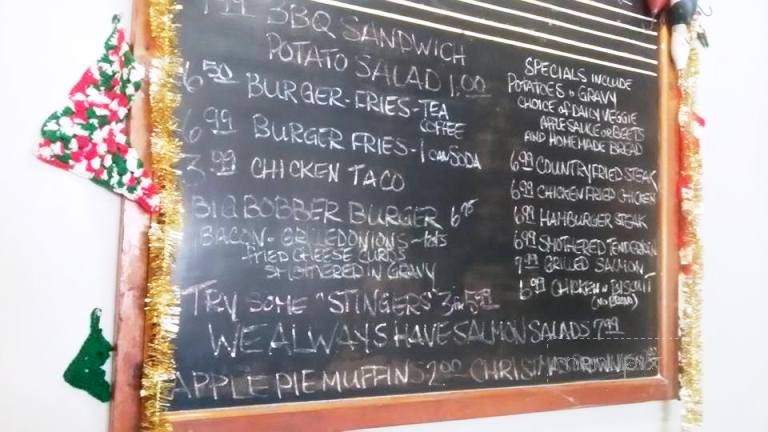 BBQ SANDWICH
POTATO SALAD 1.00
6.50 BURGER-FRIES-TEA
COFFEE
6.99 BURGER FRIES-1 CAN SODA
3.99 CHICKEN TACO
BIG BOBBER BURGER 6.95
BACON-GRILLED ONIONS-
FRIED CHEESE CURDS
SMOTHERED IN GRAVY
TRY SOME "STINGERS" 3
WE ALWAYS HAVE SALMON SALADS 7.99
APPLE PIE MUFFINS 2.00 CHRISTMAS
SPECIALS INCLUDE
POTATOES & GRAVY
CHOICE OF DAILY VEGGIE
APPLESAUCE OR BEETS
AND HOMEMADE BREAD
6.99 COUNTRY FRIED STEAK
6.99 CHICKEN FRIED CHICKEN
6.99 HAMBURGER STEAK
6.99 SMOTHERED TENDERLOIN
7.99 GRILLED SALMON
6.99 CHICKEN N BISCUIT
(NO BREAD)